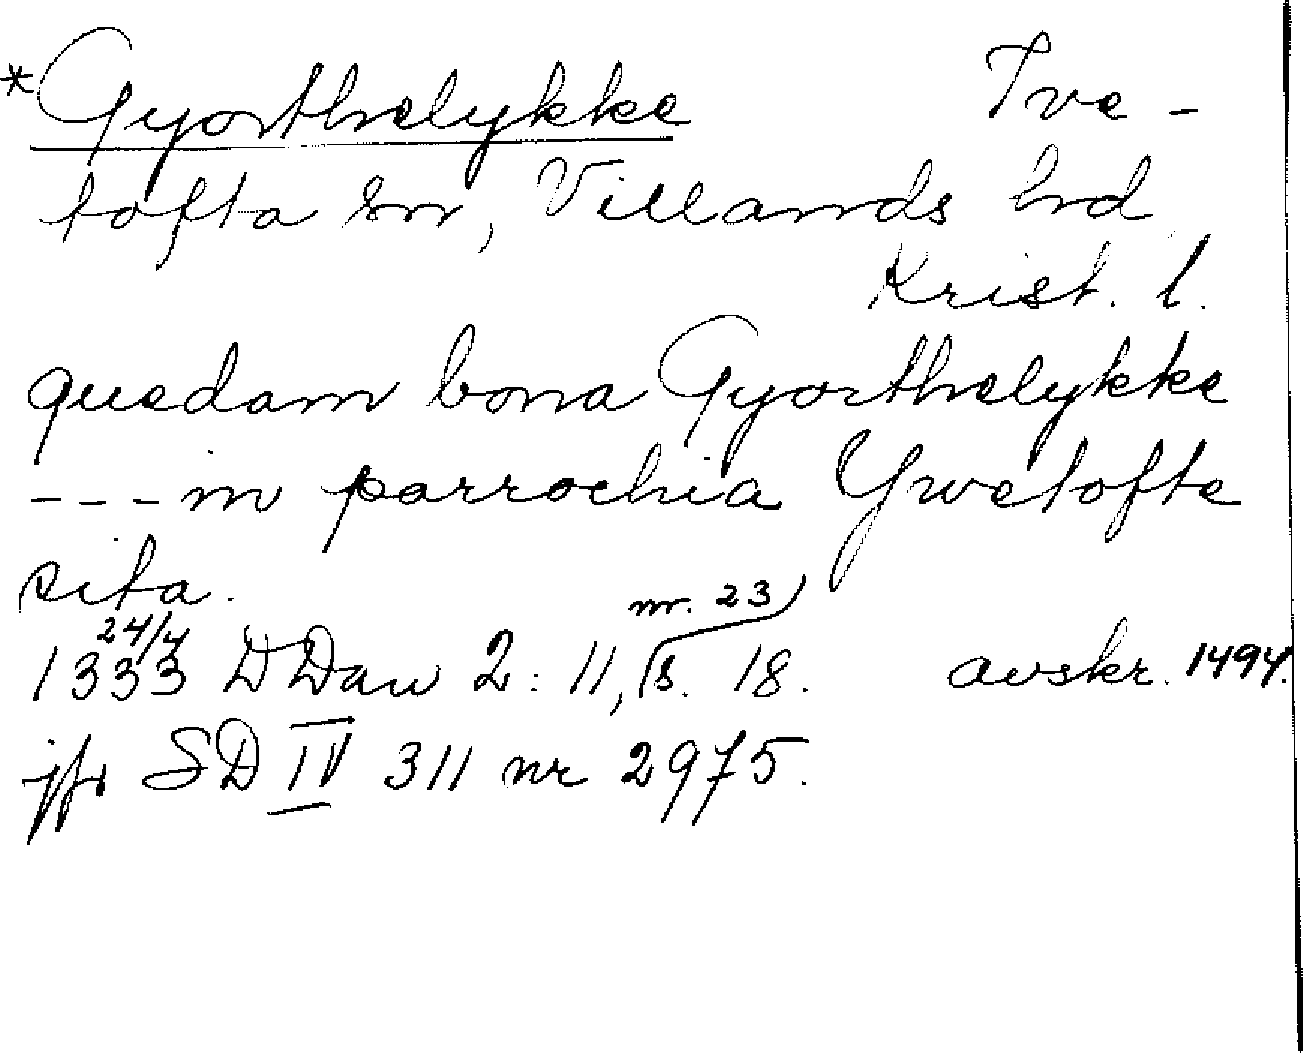 *Gyorthelykke Ive-
tofta sn, Villands hd
Krist. l.
quedam bona Gyorthelykke
---in parrochia Ywetofte
sita.
nr. 23
1333 24/4 DDan 2: 11, s. 18. avskr. 1494.
jfr SD IV 311 nr 2975.